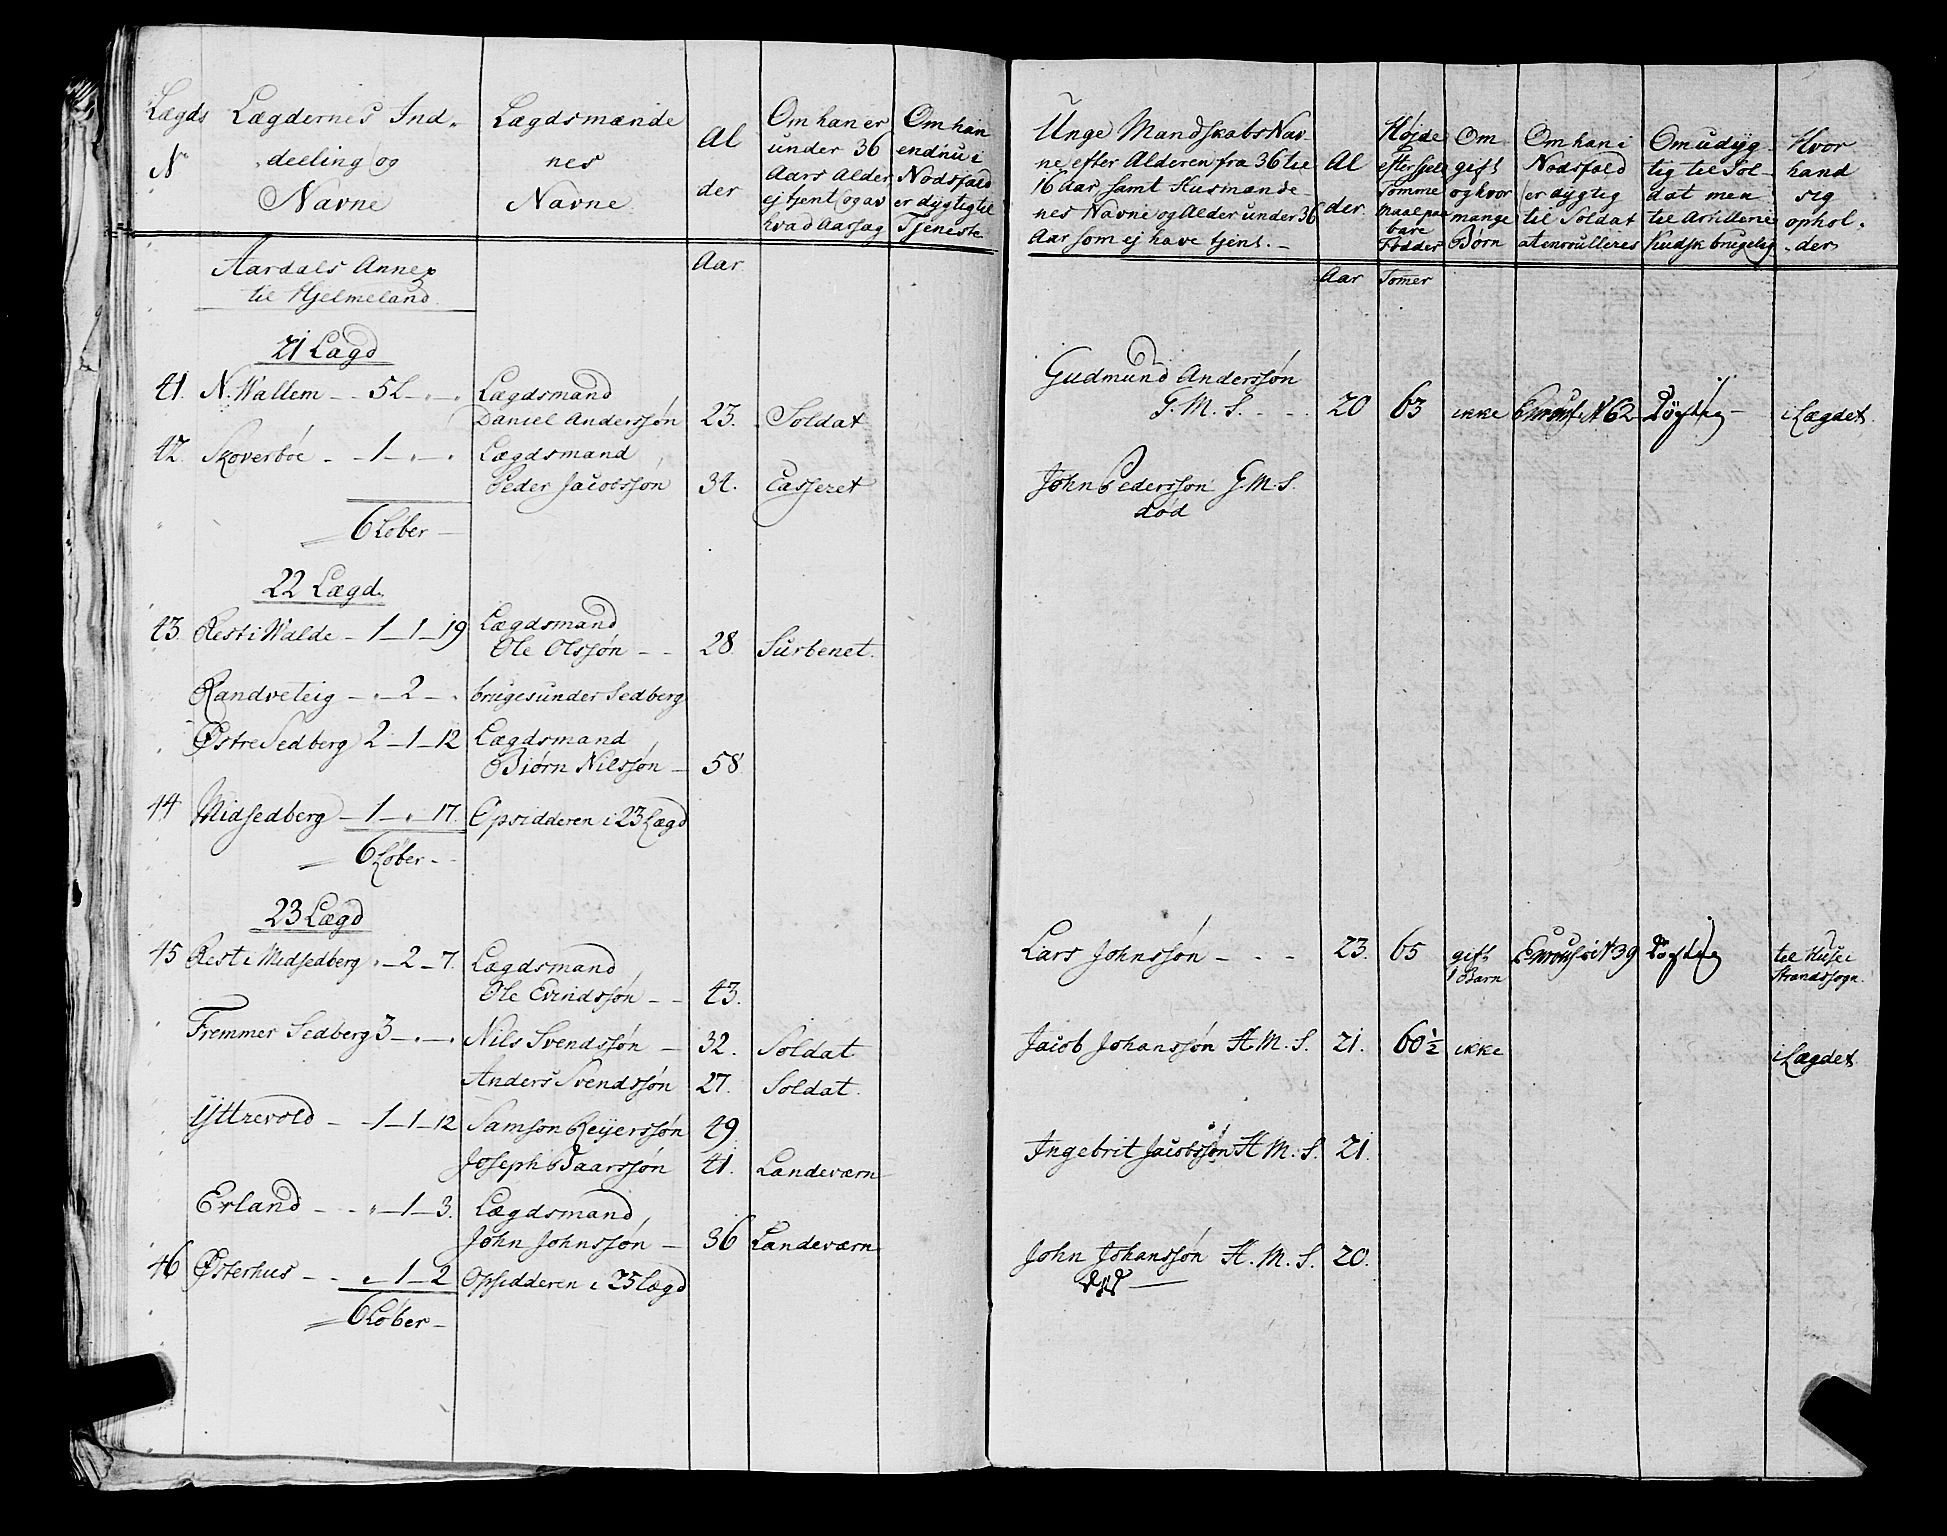 Lægds
N
Lægdernes Ind-
deeling og
Navne
Lægdsmænde
nes
Navne
Al
der
Om han er
under 36
Aars Alder
ej tjent og av
hvad Aarsag
Om han
endnu i
Nodsfald
er dygtig til
Tjeneste
Aardals Annex
til Hjelmeland
Aar
21 Lægd
41. N. Wallem - - 5 L - " - " Lægdsmand
Daniel Anderssøn 23. Soldat
42. Skoverbøe - - 1 - " - " Lægdsmand
Peder Jacobssøn 34. Casseret
6 Løber -
22 Lægd.
43. Rest i Walde - 1 - 1 - 19 Lægdsmand
Ole Olssøn - - 28. Surbenet.
Randveteig - " - 2 - " bruges under Sedberg
Østre Sedberg 2 - 1 - 12 Lægdsmand
Biørn Nilssøn - 58
44 Midsedberg - 1 - " - 17. Opsidderen i 23 Lægd
6 Løber - -
23 Lægd
45 Rest i Midsedberg " - 2 - 7. Lægdsmand
Ole Evindssøn - - 43.
Fremmer Sedberg 3 - " - " Nils Svendssøn - 32. Soldat
Anders Svendssøn 27. Soldat.
Yttrevold - - 1 - 1 - 12 Samson Reyerssøn 49
Joseph Baarssøn 41. Landeværn
Erland - - " - 1 - 3. Lægdsmand
John Johnssøn - 36 Landeværn
46 Østerhus - - " 1 - 2 Opsidderen i 25 Lægd
6 Løber -
Unge Mandskabs Nav-
ne efter Alderen fra 36 til
16 Aar, samt Husmænde-
nes Navne og Alder under 36
Aar som ej have tjent. -
Al
der.
Højde
efter
Tomme
Maal paa
bare
Fødder
Om
gift
og hvor
mange
Børn
Om han i
Nodsfald
er dygtig
til Soldat
at enroulleres
Om udyg-
tig til Sol-
dat men
til Artillerie
Kudsk brugelig
Hvor
hand
sig
ophol-
der
Aar Tomer
Gudmund Anderssøn
G. M. S. - - 20 63 ikke Enroul. N 62 Dygtig - i Lægdet
John Pederssøn G. M. S.
død
Lars Johnssøn - - - 23. 65 gift Enroul. N 39 Dygtig til Huse i
1 Barn Strandsogn.
Jacob Johanssøn H. M. S. 21. 60 1/2 ikke i Lægdet
Ingebrit Jacobssøn H. M. S. 21.
John Johanssøn H. M. S. 20.
død -